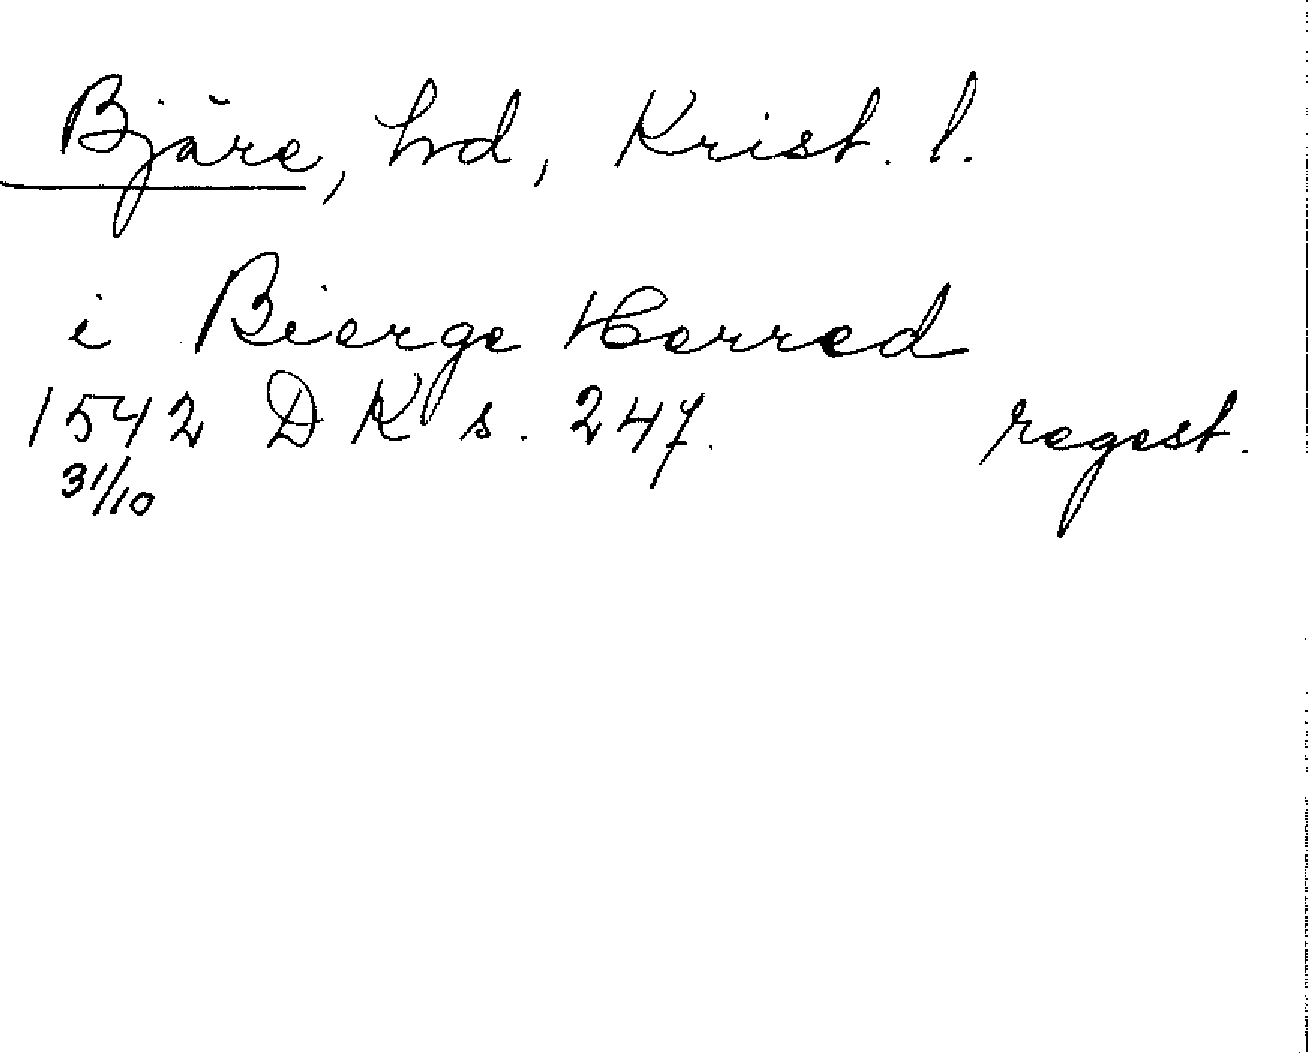 Bjäre, hd, Krist. l.
i Bierge Herred
1542 DK s. 247. regest.
31/10